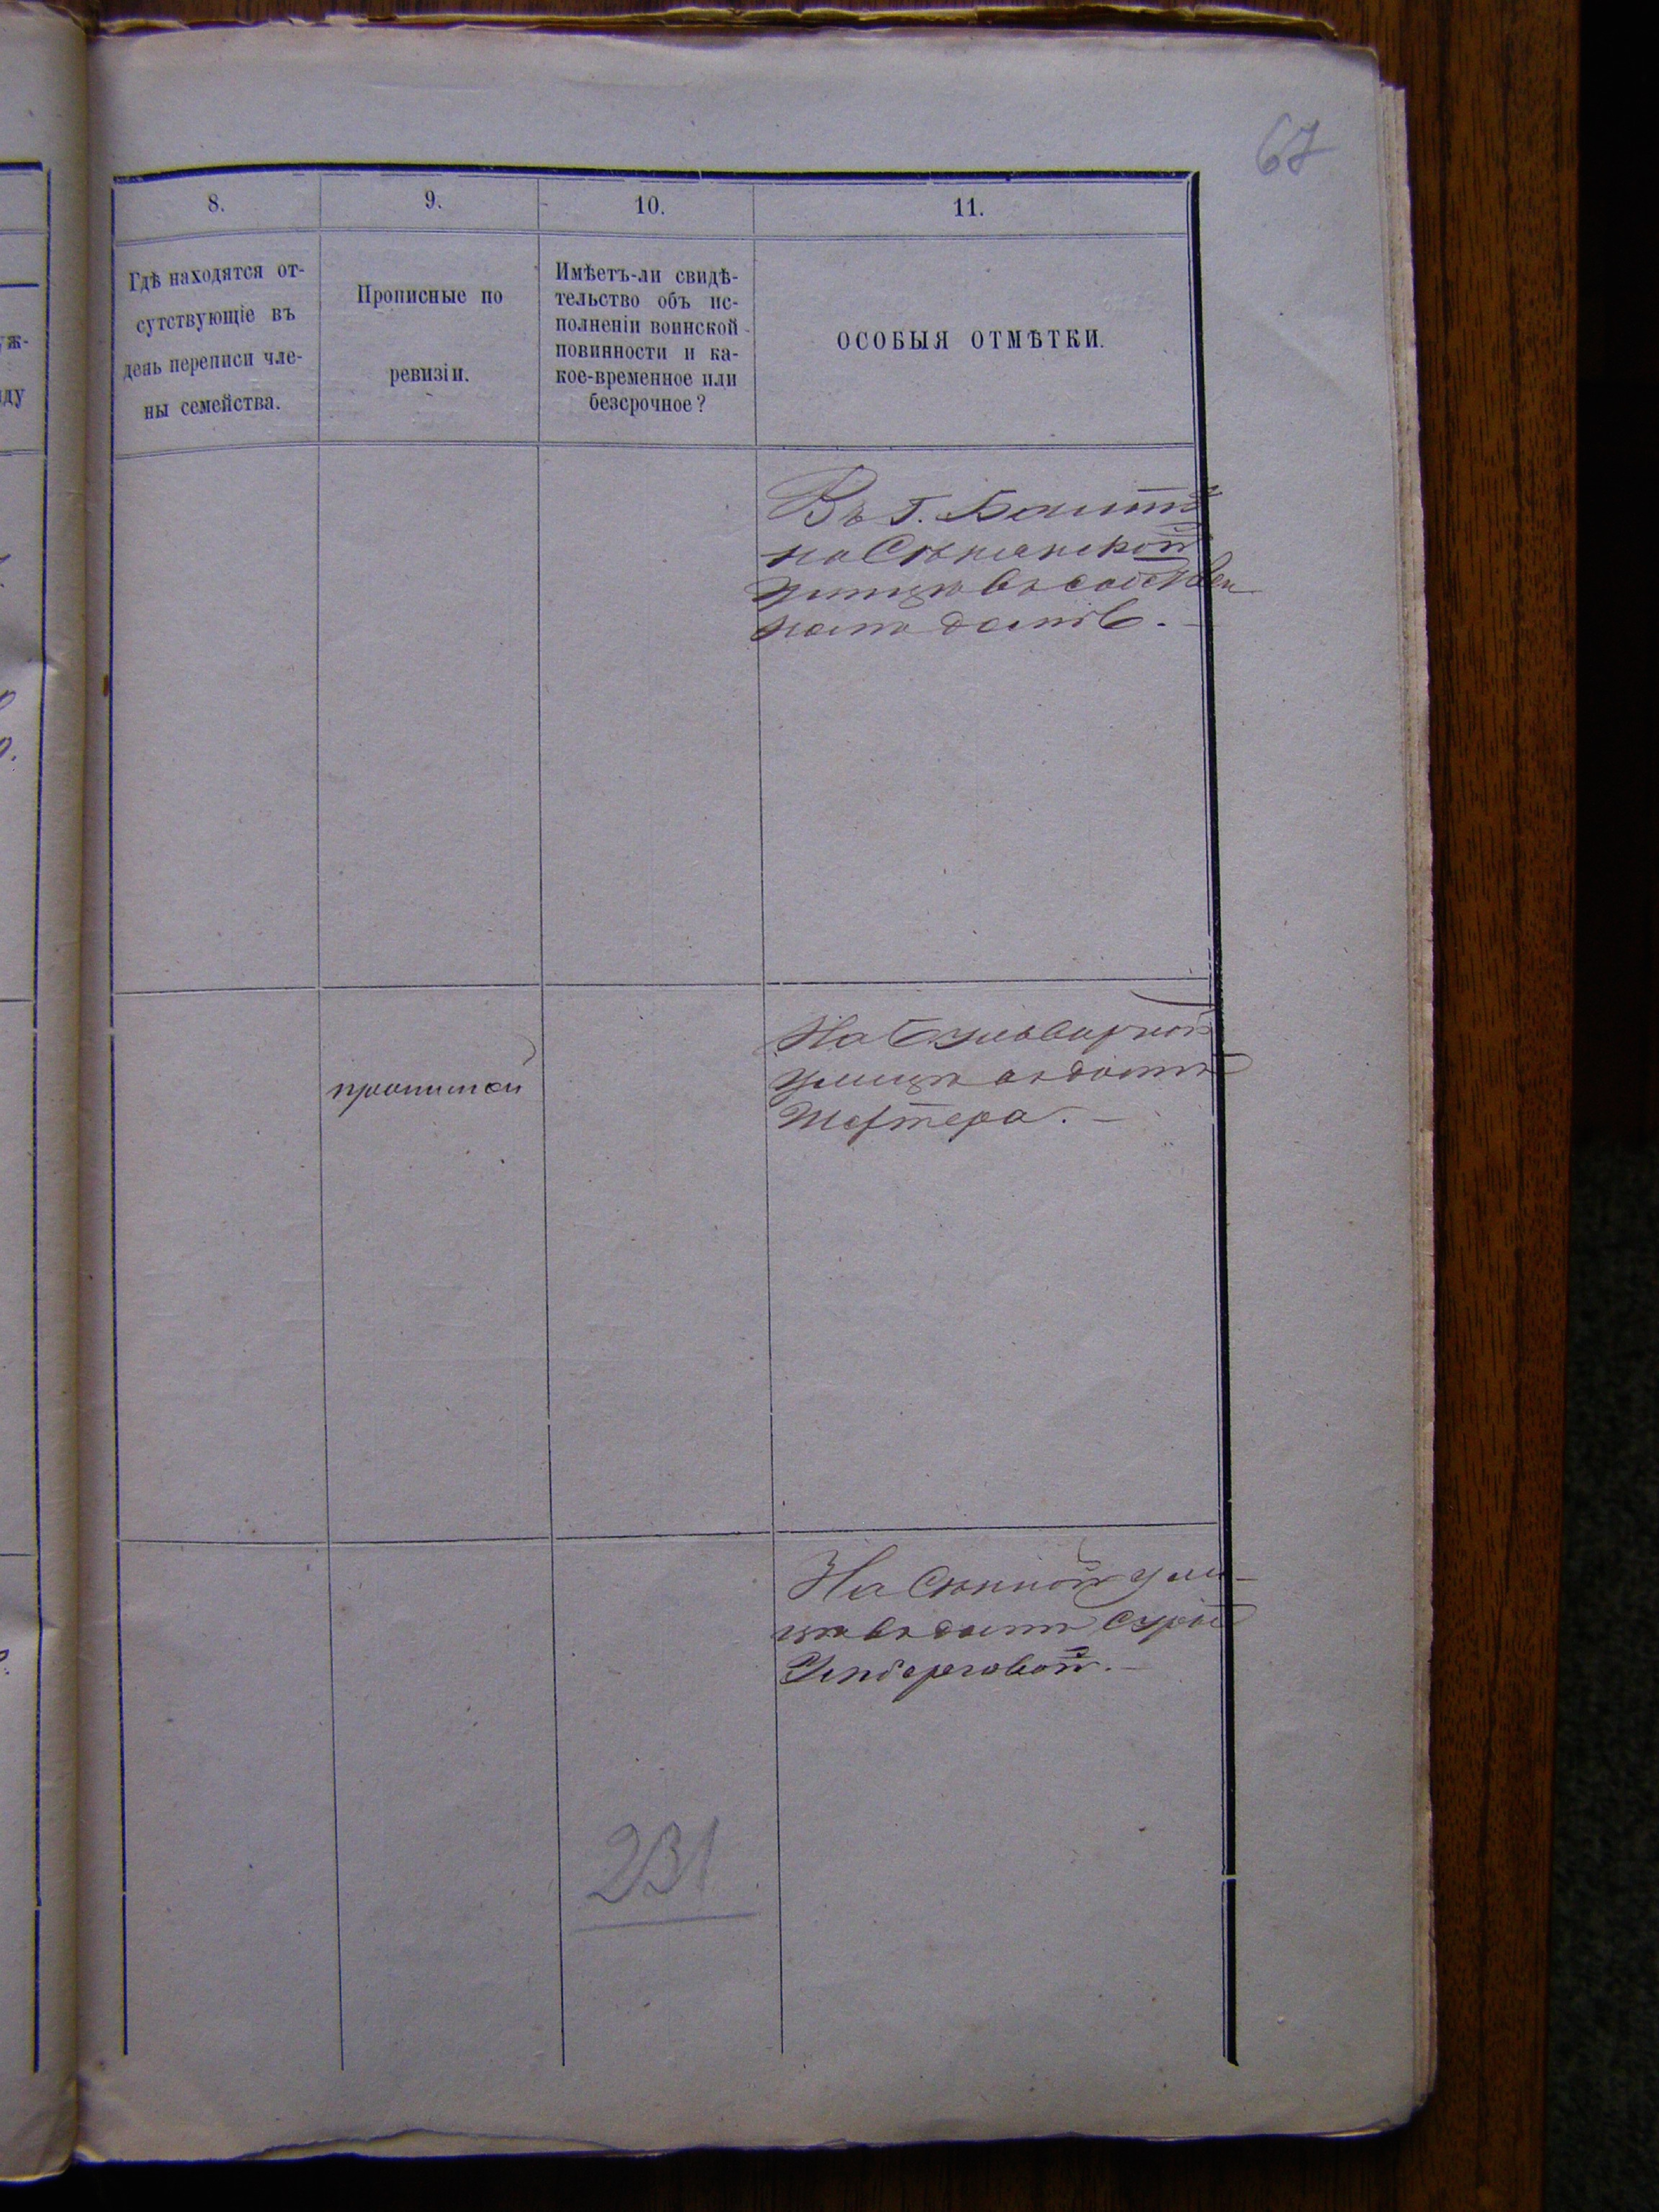 67
8.
9.
10.
11.
Гдѣ находятся от-
сутствующіе въ
день переписи чле-
ны семейства.
Прописные по
ревизіи.
Имѣетъ-ли свидѣ-
тельство объ ис-
полненіи воинской
повинности и ка-
кое-временное или
безсрочное?
ОСОБЫЯ ОТМѢТКИ.
уж-
ду
Въ г. Балтѣ
на
улицѣ въ собствен
номъ домѣ.
прописной
На Бульварной
улицѣ въ домѣ
На Сѣнной ули-
цѣ въ домѣ Суры
231